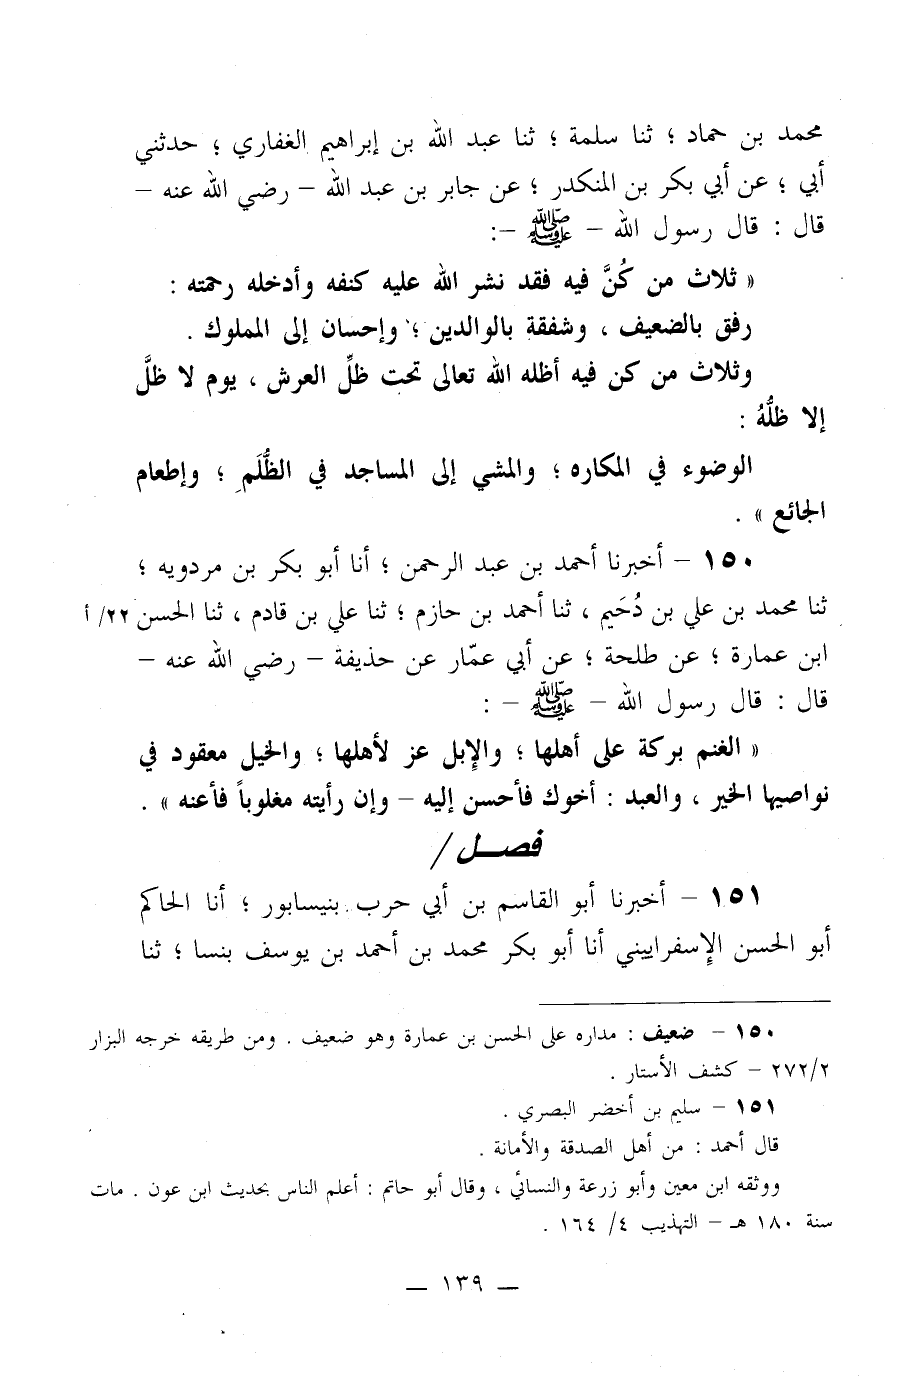 محمد بن حماد ؛ ثنا سلمة ؛ ثنا عبد الله بن إبراهيم الغفاري ؛ حدثني
أبي ؛ عن أبي بكر بن المنكدر ؛ عن جابر بن عبد الله – رضي الله عنه –
قال : قال رسول الله – ﷺ –:
« ثلاث من كُنَّ فيه فقد نشر الله عليه كنفه وأدخله رحمته :
رفق بالضعيف ، وشفقة بالوالدين ؛ وإحسان إلى المملوك .
وثلاث من كن فيه أظله الله تعالى تحت ظلِّ العرش ، يوم لا ظلَّ
إلا ظلُّهُ :
الوضوء في المكاره ؛ والمشي إلى المساجد في الظُّلَمِ ؛ وإطعام
الجائع » .
١٥٠ – أخبرنا أحمد بن عبد الرحمن ؛ أنا أبو بكر بن مردويه ؛
ثنا محمد بن علي بن دُحَيم ، ثنا أحمد بن حازم ؛ ثنا علي بن قادم ، ثنا الحسن ٢٢/ أ
ابن عمارة ؛ عن طلحة ؛ عن أبي عمّار عن حذيفة – رضي الله عنه –
قال : قال رسول الله – ﷺ – :
« الغنم بركة على أهلها ؛ والإبل عز لأهلها ؛ والخيل معقود في
نواصيها الخير ، والعبد : أخوك فأحسن إليه – وإن رأيته مغلوباً فأعنه » .
فصــل /
١٥١ – أخبرنا أبو القاسم بن أبي حرب بنيسابور ؛ أنا الحاكم
أبو الحسن الإسفراييني أنا أبو بكر محمد بن أحمد بن يوسف بنسا ؛ ثنا
١٥٠ – ضعيف : مداره على الحسن بن عمارة وهو ضعيف . ومن طريقه خرجه البزار
٢٧٢/٢ – كشف الأستار .
١٥١ – سليم بن أخضر البصري .
قال أحمد : من أهل الصدقة والأمانة .
ووثقه ابن معين وأبو زرعة والنسائي ، وقال أبو حاتم : أعلم الناس بحديث ابن عون . مات
سنة ١٨٠ هـ – التهذيب ٤/ ١٦٤ .
— ١٣٩ —